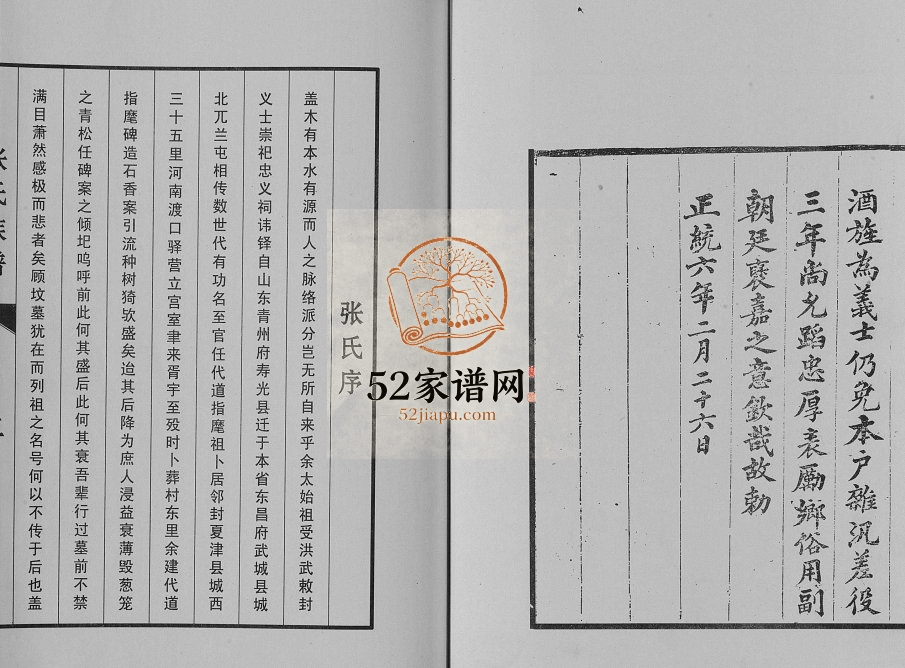 酒旌為義士仍免本户雜汎差役
三年尚允蹈忠厚表勵鄉俗用副
朝廷襃嘉之意欽哉故勅
正統六年二月二十六日
张氏序
盖木有本水有源而人之脉络派分岂无所自来乎余太始祖受洪武敕封
义士崇祀忠义祠讳铎自山东青州府寿光县迁于本省东昌府武城县城
北兀兰屯相传数世代有功名至官任代道指麾祖卜居邻封夏津县城西
三十五里河南渡口驿营立宫室聿来胥宇至殁时卜葬村东里余建代道
指麾碑造石香案引流种树猗欤盛矣迨其后降为庶人浸益衰薄毁葱笼
之青松任碑案之倾圯呜呼前此何其盛后此何其衰吾辈行过墓前不禁
满目萧然感极而悲者矣顾坟墓犹在而列祖之名号何以不传于后也盖
张氏族谱
52家谱网
52jiapu.com